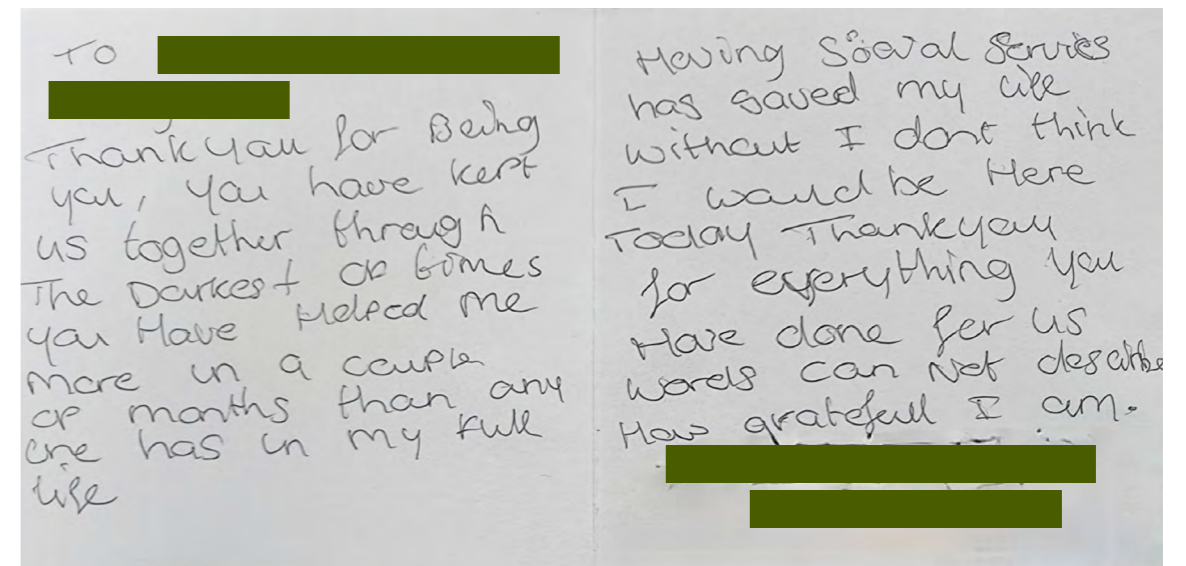 TO
Thankyou for Being
you, you have kept
us together through
The Darkest of times
you Have Helped me
more in a couple
of months than any
one has in my full
life
Having Social Services
has saved my life
without I dont think
I would be Here
Today Thankyou
for everything you
Have done for us
words can Not describe
How gratefull I am.